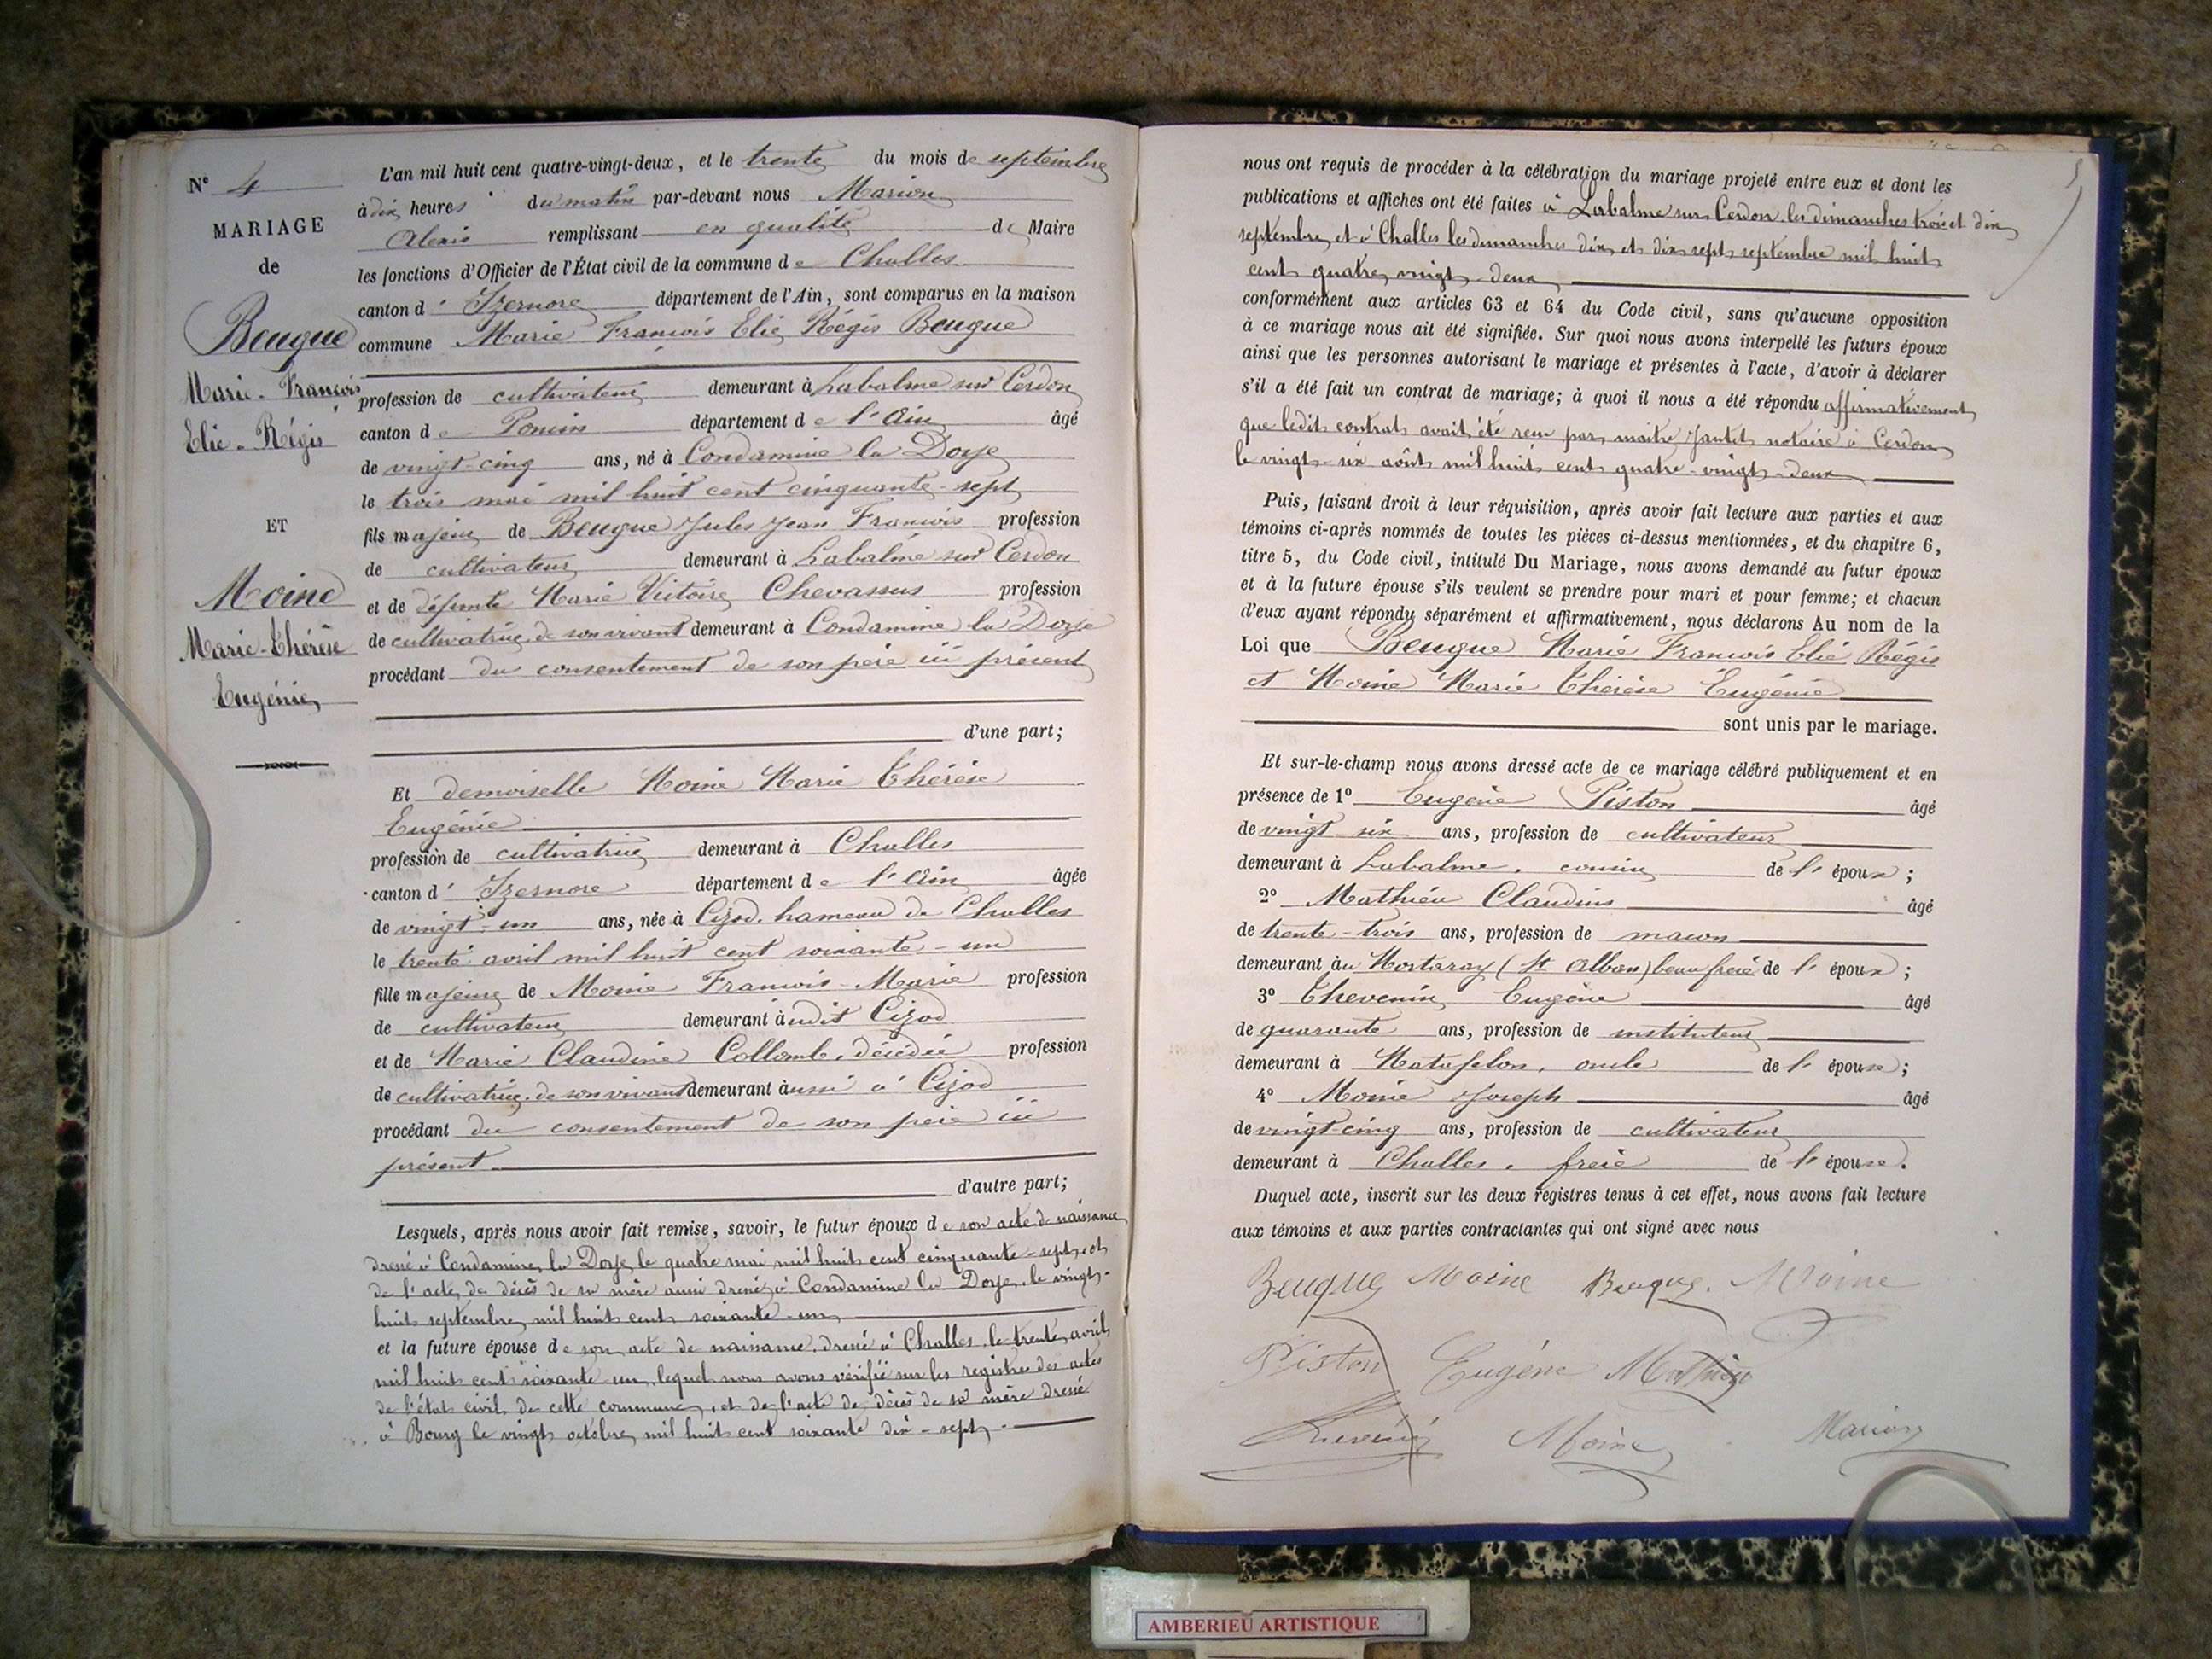 N° 4
MARIAGE
de
Beugue
Marie-François
Elie-Régis
ET
Moine
Marie-Thérèse
Eugénie
L'an mil huit cent quatre-vingt-deux, et le trente du mois de septembre
à dix heures du matin par-devant nous Marion
Alexis remplissant en qualité de Maire
les fonctions d'Officier de l'État civil de la commune de Challes
canton d' Izernore département de l'Ain, sont comparus en la maison
commune Marie François Elie Régis Beugue
profession de cultivateur demeurant à Labalme sur Cerdon
canton de Poncin département de l'Ain âgé
de vingt-cinq ans, né à Condamine la Doye
le trois mai mil huit cent cinquante-sept
fils majeur de Beugue Jules Jean François profession
de cultivateur demeurant à Labalme sur Cerdon
et de défunte Marie Victoire Chevassus profession
de cultivatrice de son vivant demeurant à Condamine la Doye
procédant du consentement de son père ici présent
d'une part;
Et demoiselle Moine Marie Thérèse
Eugénie
profession de cultivatrice demeurant à Challes
canton d' Izernore département de l'Ain âgée
de vingt-un ans, née à Cizod, hameau de Challes
le trente avril mil huit cent soixante-un
fille majeure de Moine François-Marie profession
de cultivateur demeurant audit Cizod
et de Marie Claudine Collomb, décédée profession
de cultivatrice de son vivant demeurant aussi à Cizod
procédant du consentement de son père ici
présent
d'autre part;
Lesquels, après nous avoir fait remise, savoir, le futur époux de son acte de naissance
dressé à Condamine la Doye le quatre mai mil huit cent cinquante-sept, et
de l'acte de décès de sa mère aussi dressé à Condamine la Doye, le vingt-
huit septembre mil huit cent soixante-un
et la future épouse de son acte de naissance, dressé à Challes, le trente avril
mil huit cent soixante-un, lequel nous avons vérifié sur les registres des actes
de l'état civil de cette commune, et de l'acte de décès de sa mère dressé
à Bourg le vingt octobre mil huit cent soixante dix-sept.
nous ont requis de procéder à la célébration du mariage projeté entre eux et dont les
publications et affiches ont été faites à Labalme sur Cerdon les dimanches trois et dix
septembre, et à Challes les dimanches dix et dix-sept septembre mil huit
cent quatre vingt-deux
conformément aux articles 63 et 64 du Code civil, sans qu'aucune opposition
à ce mariage nous ait été signifiée. Sur quoi nous avons interpellé les futurs époux
ainsi que les personnes autorisant le mariage et présentes à l'acte, d'avoir à déclarer
s'il a été fait un contrat de mariage; à quoi il nous a été répondu affirmativement
que ledit contrat avait été reçu par maître Jantet notaire à Cerdon
le vingt-six août mil huit cent quatre-vingt-deux
Puis, faisant droit à leur réquisition, après avoir fait lecture aux parties et aux
témoins ci-après nommés de toutes les pièces ci-dessus mentionnées, et du chapitre 6,
titre 5, du Code civil, intitulé Du Mariage, nous avons demandé au futur époux
et à la future épouse s'ils veulent se prendre pour mari et pour femme; et chacun
d'eux ayant répondu séparément et affirmativement, nous déclarons Au nom de la
Loi que Beugue Marie François Elie Régis
et Moine Marie Thérèse Eugénie
sont unis par le mariage.
Et sur-le-champ nous avons dressé acte de ce mariage célébré publiquement et en
présence de 1° Eugène Piston âgé
de vingt six ans, profession de cultivateur
demeurant à Labalme, cousin de l'époux;
2° Mathieu Claudius âgé
de trente-trois ans, profession de maçon
demeurant au Mortaray (St Alban) beau frère de l'époux;
3° Thevenin Eugène âgé
de quarante ans, profession de instituteur
demeurant à Matafelon, oncle de l'épouse;
4° Moine Joseph âgé
de vingt-cinq ans, profession de cultivateur
demeurant à Challes, frère de l'épouse.
Duquel acte, inscrit sur les deux registres tenus à cet effet, nous avons fait lecture
aux témoins et aux parties contractantes qui ont signé avec nous
Beugue Moine Beugue. Moine
Piston Eugène Mathieu
Thevenin Moine Marion
AMBERIEU ARTISTIQUE